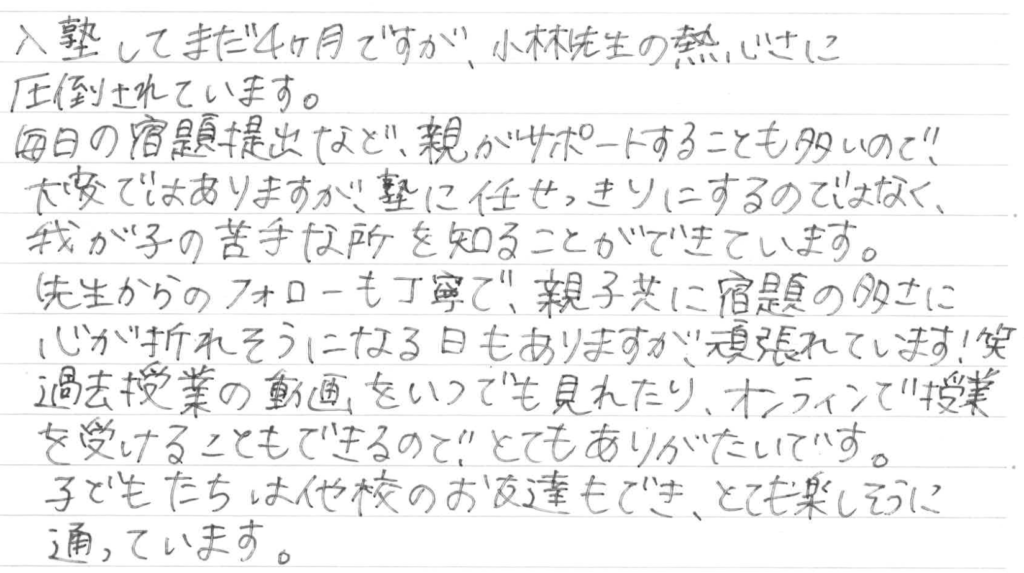 入塾してまだ4ヶ月ですが、小林先生の熱心さに
圧倒されています。
毎日の宿題提出など、親がサポートすることも多いので、
大変ではありますが、塾に任せっきりにするのではなく、
我が子の苦手な所を知ることができています。
先生からのフォローも丁寧で、親子共に宿題の多さに
心が折れそうになる日もありますが、頑張れています!笑
過去授業の動画をいつでも見れたり、オンラインで授業
を受けることもできるので、とてもありがたいです。
子どもたちは他校のお友達もでき、とても楽しそうに
通っています。